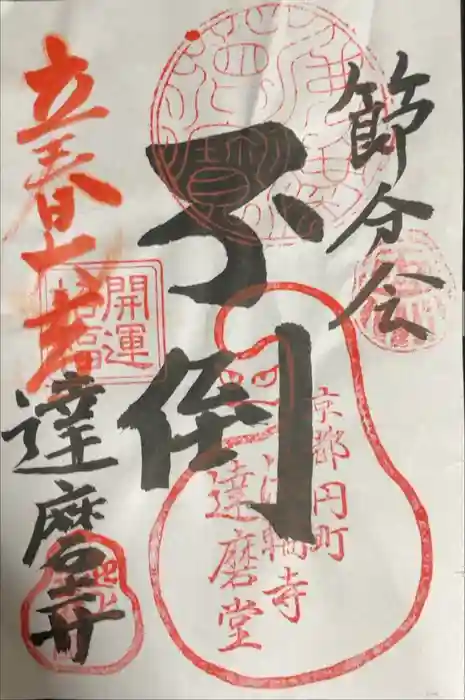 節分会
不倒
立春大吉
達磨寺
開運
招福
京都円町
法輪寺
達磨堂